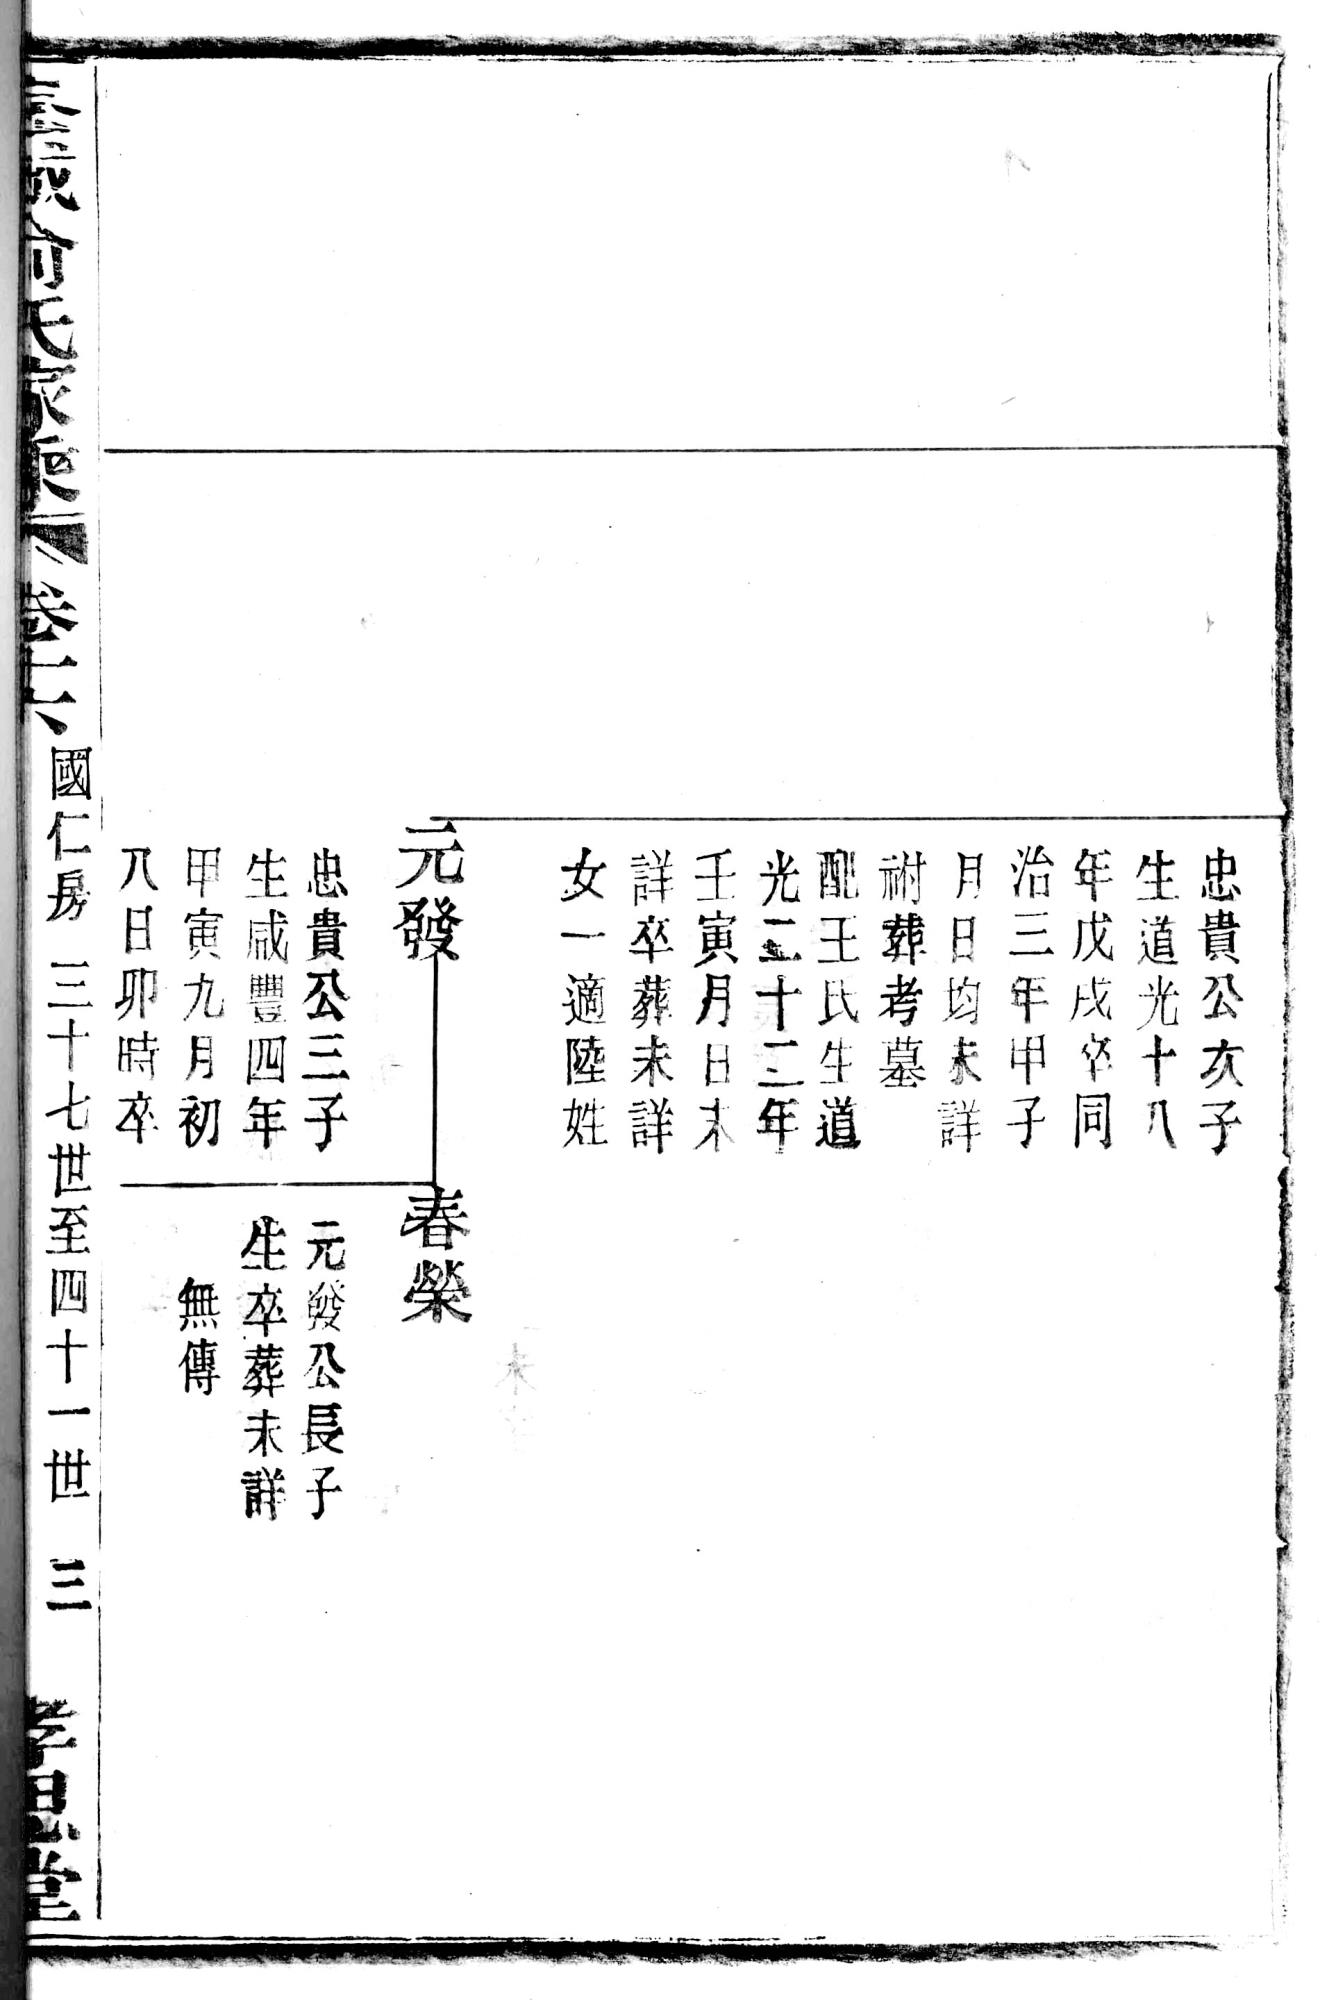 忠貴公次子
生道光十八
年戊戌卒同
治三年甲子
月日均未詳
祔葬考墓
配王氏生道
光二十二年
壬寅月日未
詳卒葬未詳
女一適陸姓
元發
忠貴公三子
生咸豐四年
甲寅九月初
八日卯時卒
春榮
元發公長子
生卒葬未詳
無傳
俞氏家乘
卷十六
國仁房 三十七世至四十一世 三
孝思堂